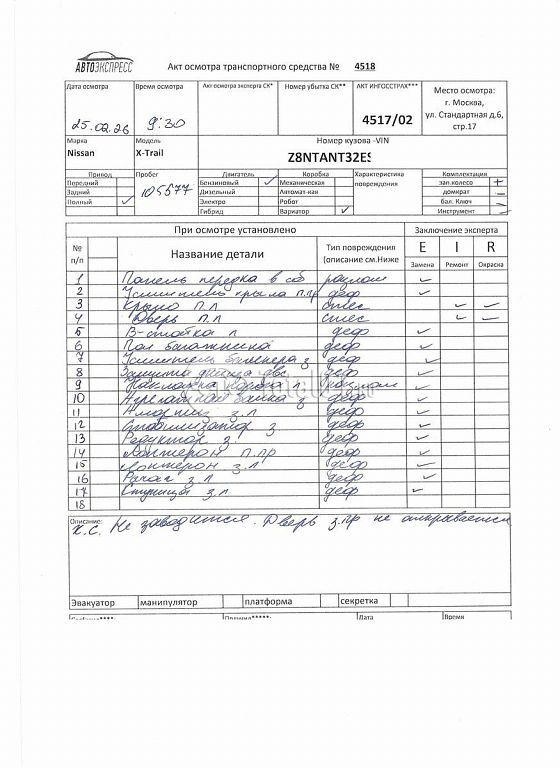 АВТОЭКСПРЕСС
Акт осмотра транспортного средства № 4518
Дата осмотра Время осмотра Акт осмотра эксперта СК* Номер убытка СК** АКТ ИНГОССТРАХ*** Место осмотра:
г. Москва,
ул. Стандартная д.6,
стр.17
25.02.26 9:30 4517/02
Марка Модель Номер кузова -VIN
Nissan X-Trail Z8NTANT32ES
Привод Пробег Двигатель Коробка Характеристика повреждения Комплектация
Передний 105577 Бензиновый ✓ Механическая зап.колесо +
Задний Дизельный Автомат-кая домкрат –
Полный ✓ Электро Робот бал. Ключ
Гибрид Вариатор ✓ Инструмент
При осмотре установлено Заключение эксперта
№ п/п Название детали Тип повреждения (описание см.Ниже E I R
Замена Ремонт Окраска
1 Панель передка в сб разлом ✓
2 Усилитель крыла п.пр деф ✓
3 Крыло п.л ✓ ✓
4 Дверь п.л ✓ ✓
5 В-стойка л деф ✓
6 Пол багажника деф ✓
7 Усилитель бампера з деф ✓
8 Защита двс деф ✓
9 Накладка ✓
10 з деф ✓
11 з.л деф ✓
12 Стабилизатор з деф ✓
13 Редуктор з. деф ✓
14 Лонжерон п.пр деф ✓
15 Лонжерон з.л деф ✓
16 Рычаг з.л деф ✓
17 Ступица з.л деф ✓
18
Описание:
К.С. Не заводится. Дверь з.пр не открывается
Эвакуатор манипулятор платформа секретка
Дата Время